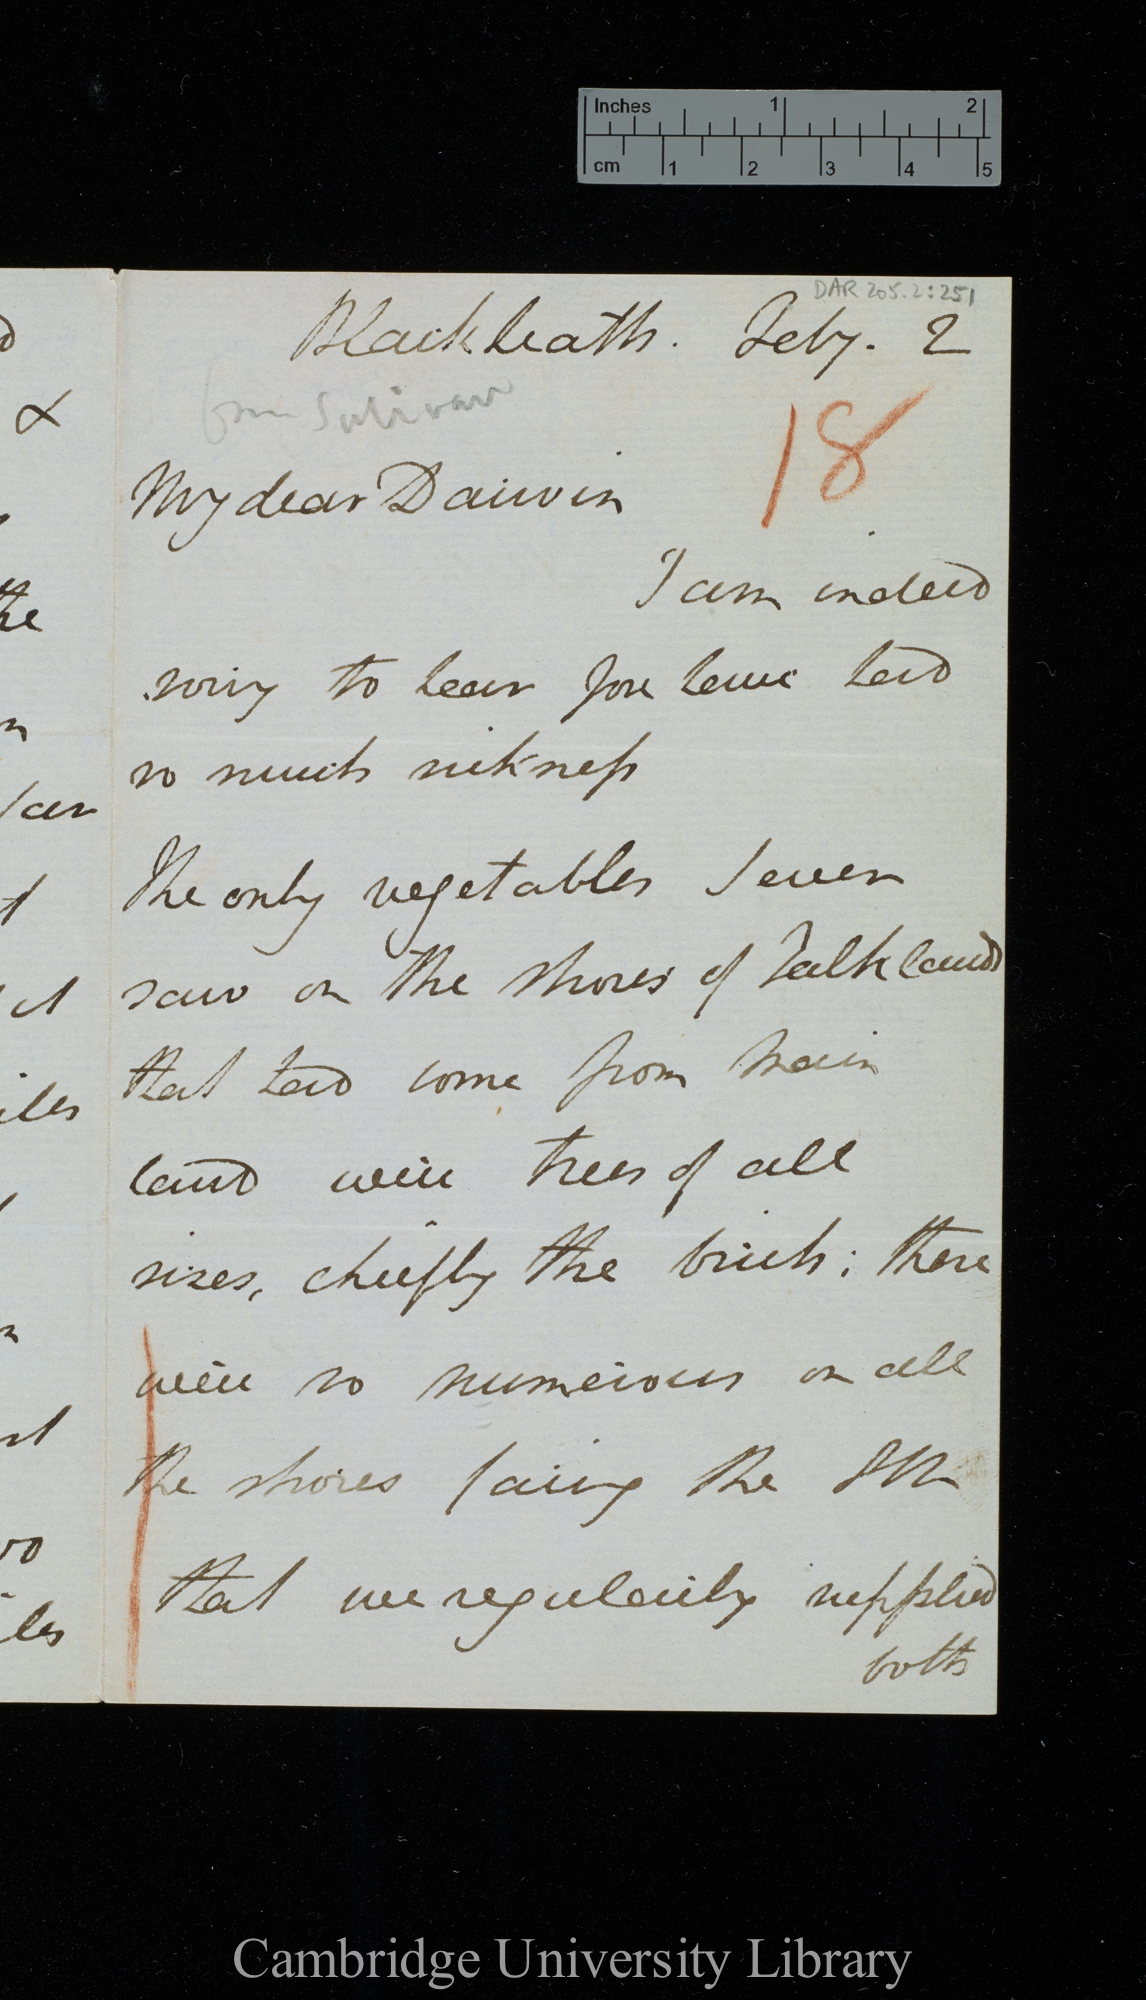 Inches 1 2
cm 1 2 3 4 5
DAR 205.2:251
Blackheath. Feby. 2
from Sulivan
18
My dear Darwin
I am indeed
sorry to hear you have had
so much sickness
The only vegetables I ever
saw on the shores of Falkland
that had come from main
land were trees of all
sizes, chiefly the birch; these
were so numerous on all
the shores facing the SW
that we regularly supplied
both
&
the
iles
les
Cambridge University Library